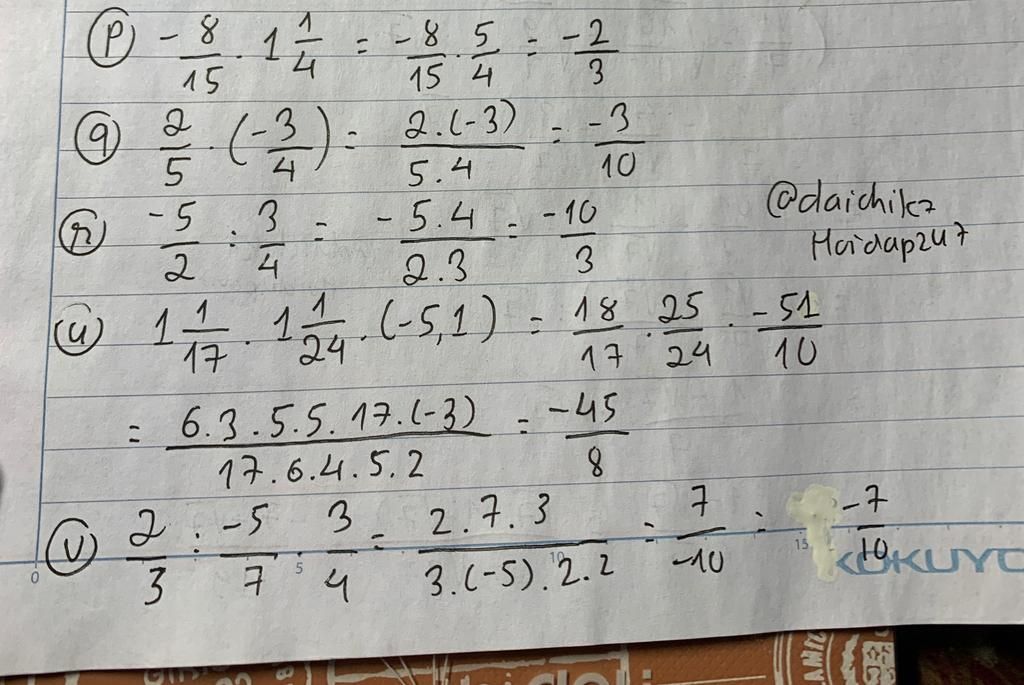 (p) -8/15 . 1 1/4 = -8/15 . 5/4 = -2/3
(q) 2/5 . (-3/4) = 2.(-3)/5.4 = -3/10
(r) -5/2 : 3/4 = -5.4/2.3 = -10/3
@daichikz
Haidap247
(u) 1 1/17 . 1 1/24 . (-5,1) = 18/17 . 25/24 . -51/10
= 6.3.5.5.17.(-3)/17.6.4.5.2 = -45/8
(v) 2/3 : -5/7 . 3/4 = 2.7.3/3.(-5).2.2 = 7/-10 = -7/10
0 5 10 15 KOKUYO